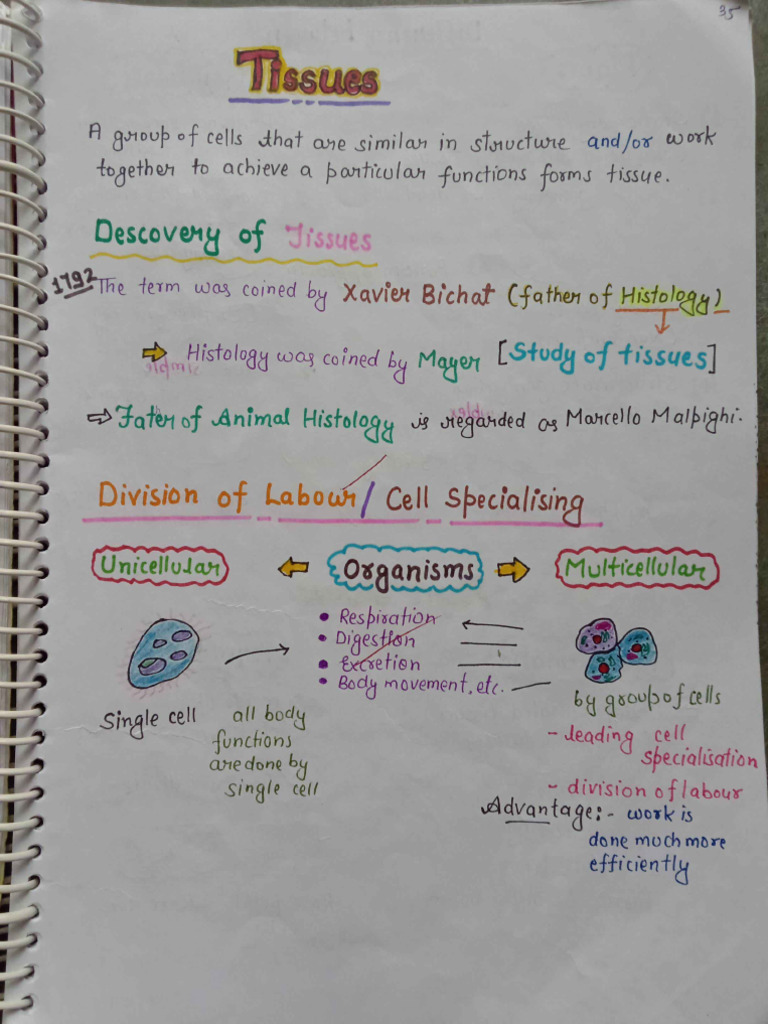 35
Tissues
A group of cells that are similar in structure and/or work
together to achieve a particular functions forms tissue.
Descovery of Tissues
1792 The term was coined by Xavier Bichat (father of Histology)
Histology was coined by Mayer [Study of tissues]
Fater of Animal Histology is regarded as Marcello Malpighi.
Division of Labour / Cell Specialising
Unicellular Organisms Multicellular
• Respiration
• Digestion
• Excretion
• Body movement, etc.
Single cell
all body
functions
are done by
single cell
by group of cells
- leading cell
specialisation
- division of labour
Advantage:- work is
done much more
efficiently